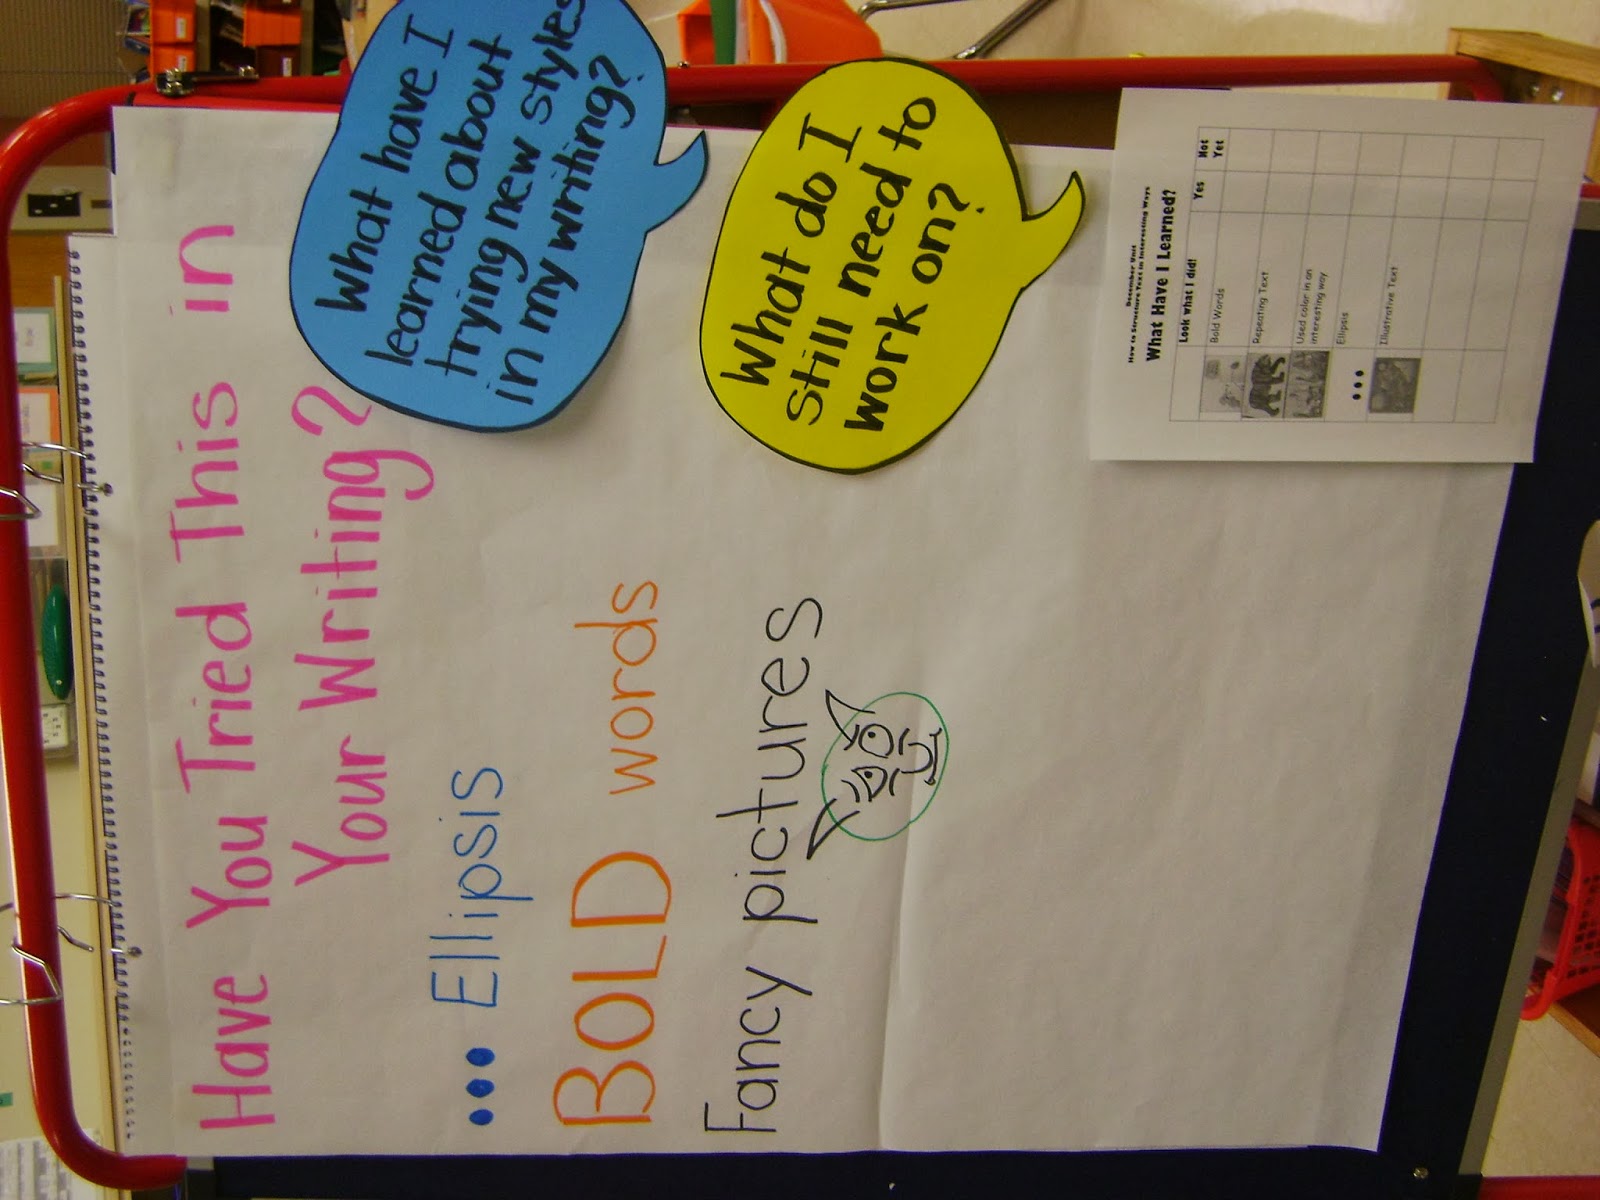 Have You Tried This in
Your Writing?
... Ellipsis
BOLD words
Fancy pictures
What have I
learned about
trying new styles
in my writing?
What do I
still need to
work on?
December Unit
How to Structure Text in Interesting Ways
What Have I Learned?
Look what I did! Yes Not Yet
Bold Words
Repeating Text
Used color in an
interesting way
... Ellipsis
Illustrative Text